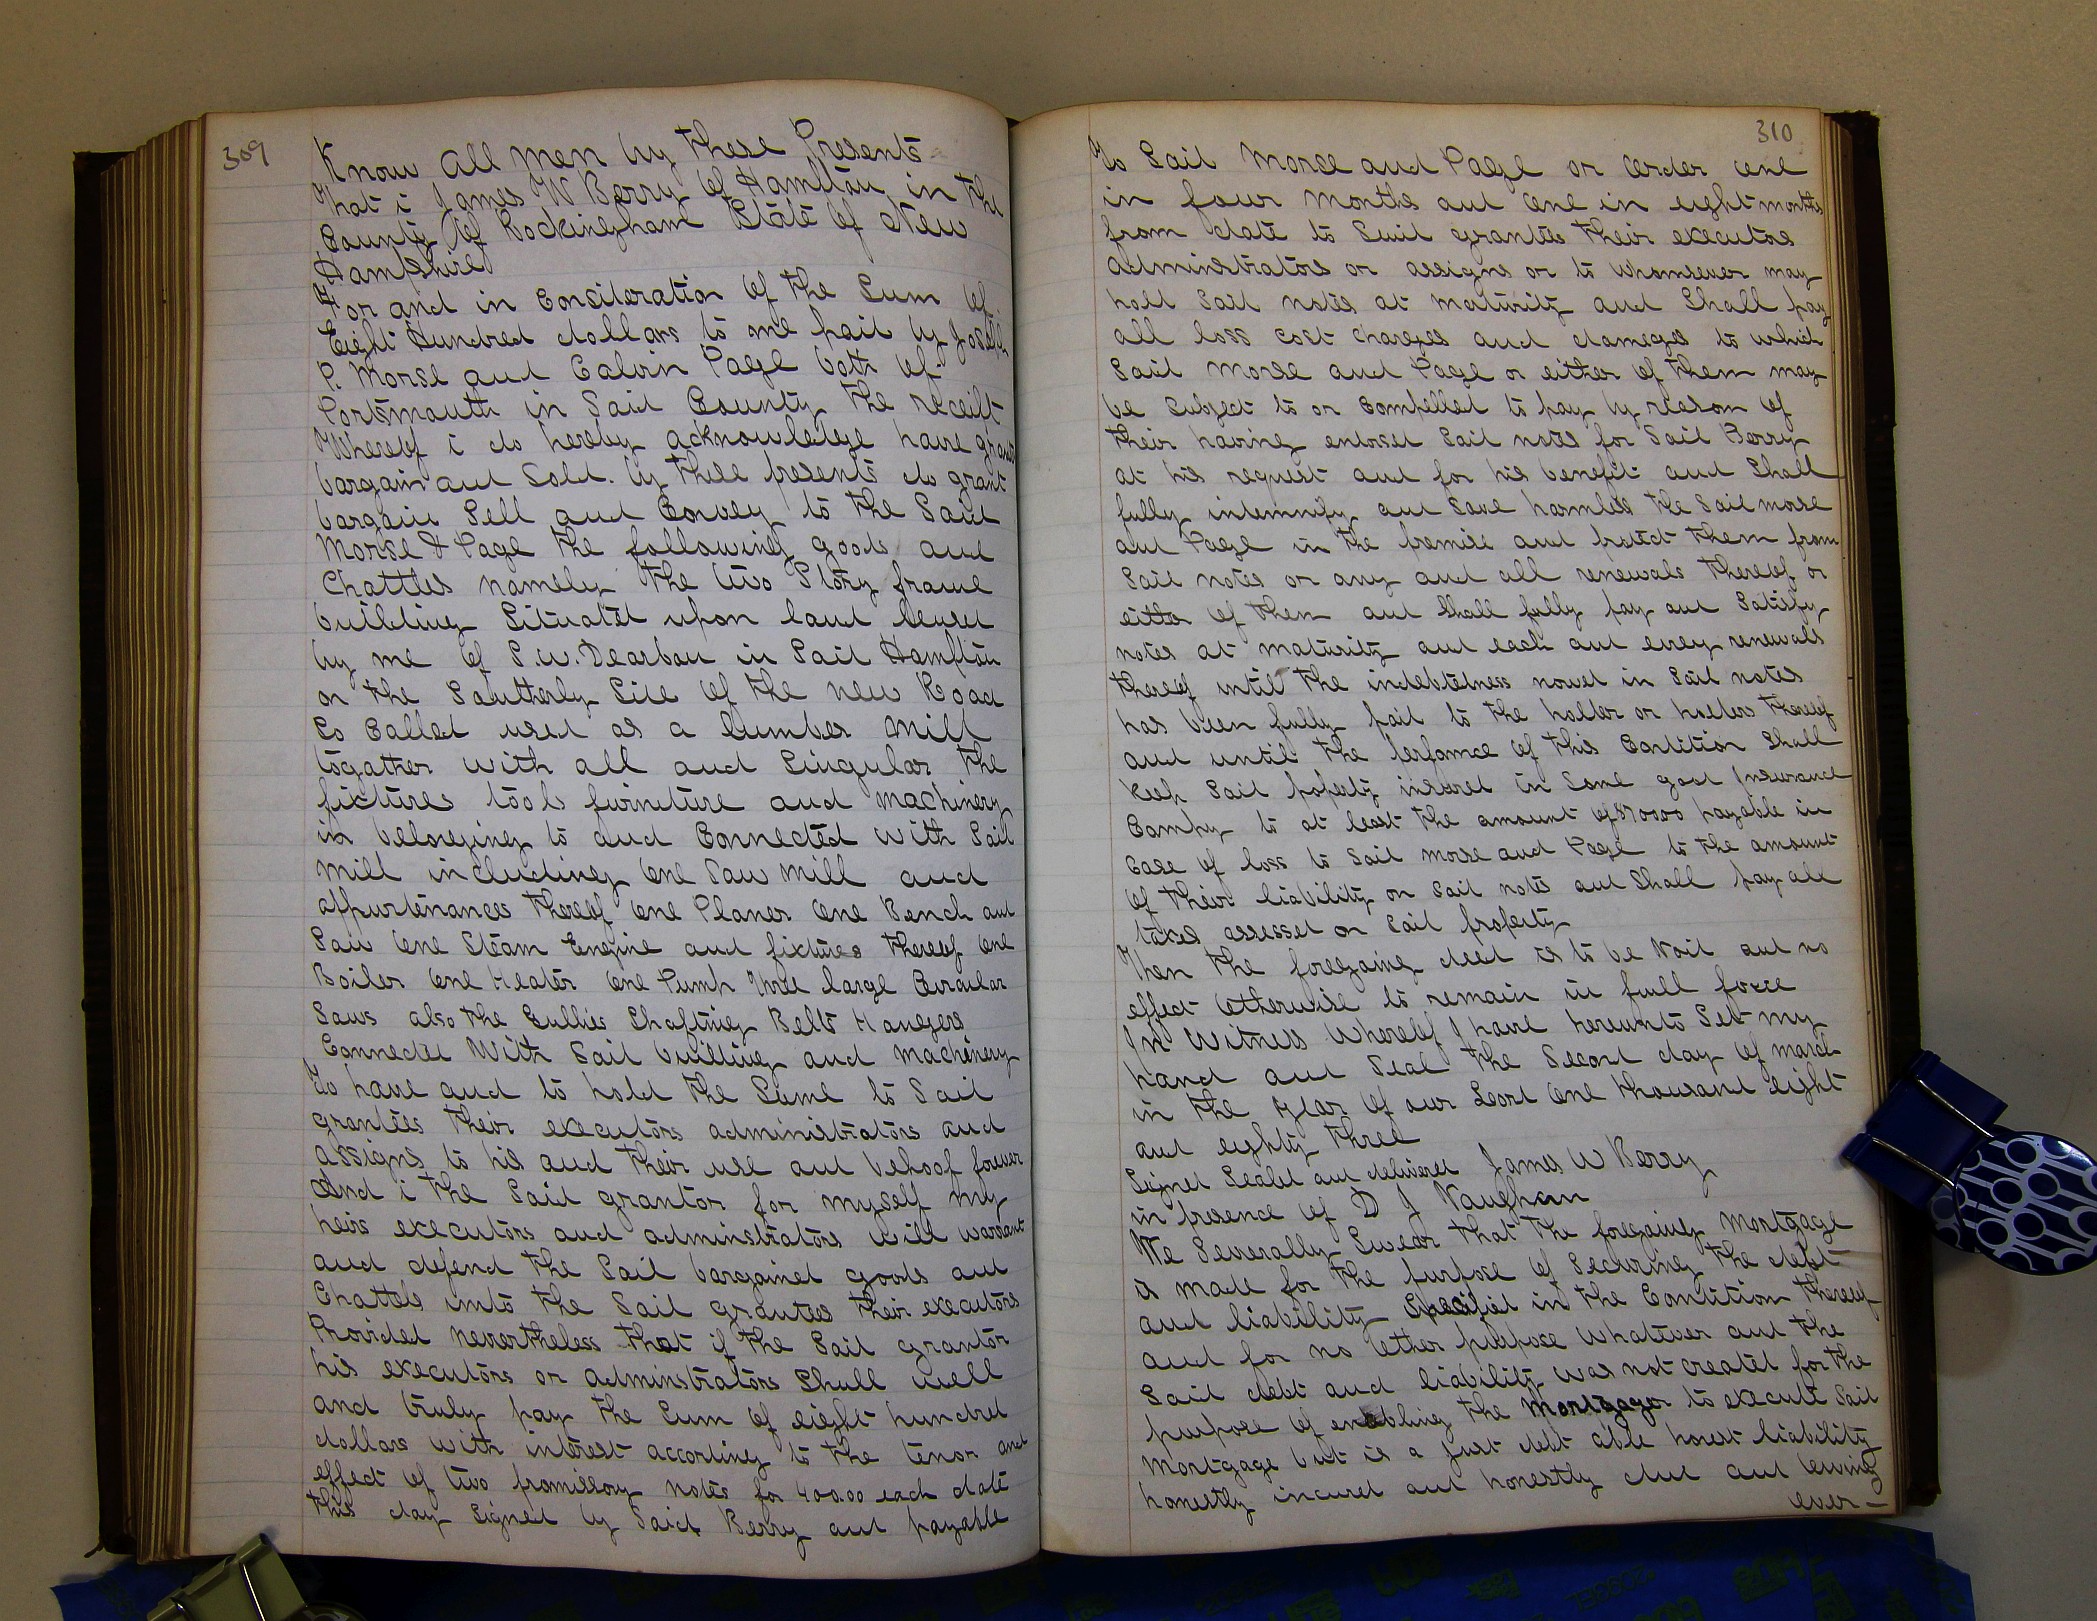 309
Know All Men by These Presents
That i James W Berry of Hampton in the
County of Rockingham State of New
Hampshire
For and in Consideration of the Sum of
Eight Hundred dollars to me paid by Joseph
P. Morse and Calvin Page both of
Portsmouth in Said County the receipt
Whereof i do hereby acknowledge have grant
bargain and Sold. by these presents do grant
bargain Sell and Convey to the Said
Morse & Page the following goods and
Chattles namely the two Story frame
building Situated upon land leased
by me of S.W. Dearbon in Said Hampton
on the Southerly Side of the new Road
So Called used as a lumber Mill
togather with all and Singular the
fixtures tools furniture and machinery
in belonging to and Connected with Said
Mill including one Saw Mill and
appurtenances thereof one Planer one Bench and
Saw one Steam Engine and fixtures thereof one
Boiler one Heater one Pump three large Circular
Saws also the Pullies Shafting Belts Hangers
Connected With Said building and Machinery
To have and to hold the Same to Said
grantees their executors administrators and
assigns to his and their use and behoof forever
And i the Said grantor for myself my
heirs executors and adminstrators will warrant
and defend the Said bargained goods and
Chattels unto the Said grantees their executors
Provided nevertheless that if the Said grantor
his executors or adminstrators Shall well
and truly pay the Sum of eight hundred
dollars with interest according to the tenor and
effect of two promissory notes for 400.00 each date
this day Signed by Said Berry and payable
310
To Said Morse and Page or order one
in four months and one in eight months
from date to Said grantees their executors
adminstrators or assigns or to whomsever may
hold Said notes at maturity and Shall pay
all loss cost charges and dameges to which
Said Morse and Page or either of them may
be Subject to or Compelled to pay by reason of
their having endorsed Said notes for Said Berry
at his request and for his benefit and Shall
fully indemnify and Save harmless the Said morse
and Page in the premise and protect them from
Said notes or any and all renewals thereof or
either of them and Shall fully pay and Satisfy
notes at maturity and each and every renewals
thereof until the indebtedness named in Said notes
has been fully paid to the holder or holders thereof
and until the of this Condition Shall
Keep Said property insured in Some good Insurance
Compny to at least the amount of payable in
Case of loss to Said morse and Page to the amount
of their liability on Said notes and Shall pay all
taxes assessed on Said property
Then the foregoing deed is to be Void and no
effect otherwise to remain in full force
In Witness Whereof I have hereunto Set my
hand and Seal the Second day of march
in the year of our Lord one thousand eight
and eighty three
Signed Sealed and delivered James W Berry
in presence of D J Vaughan
We Severally Swear that the foregoing Mortgage
is made for the purpose of Securing the debt
and liability Specified in the Condition thereof
and for no other purpose Whatever and the
Said debt and liability was not created for the
purpose of enabling the Mortgagor to execute Said
Mortgage but is a just debt able honest liability
honestly incured and honestly due and owing
over -